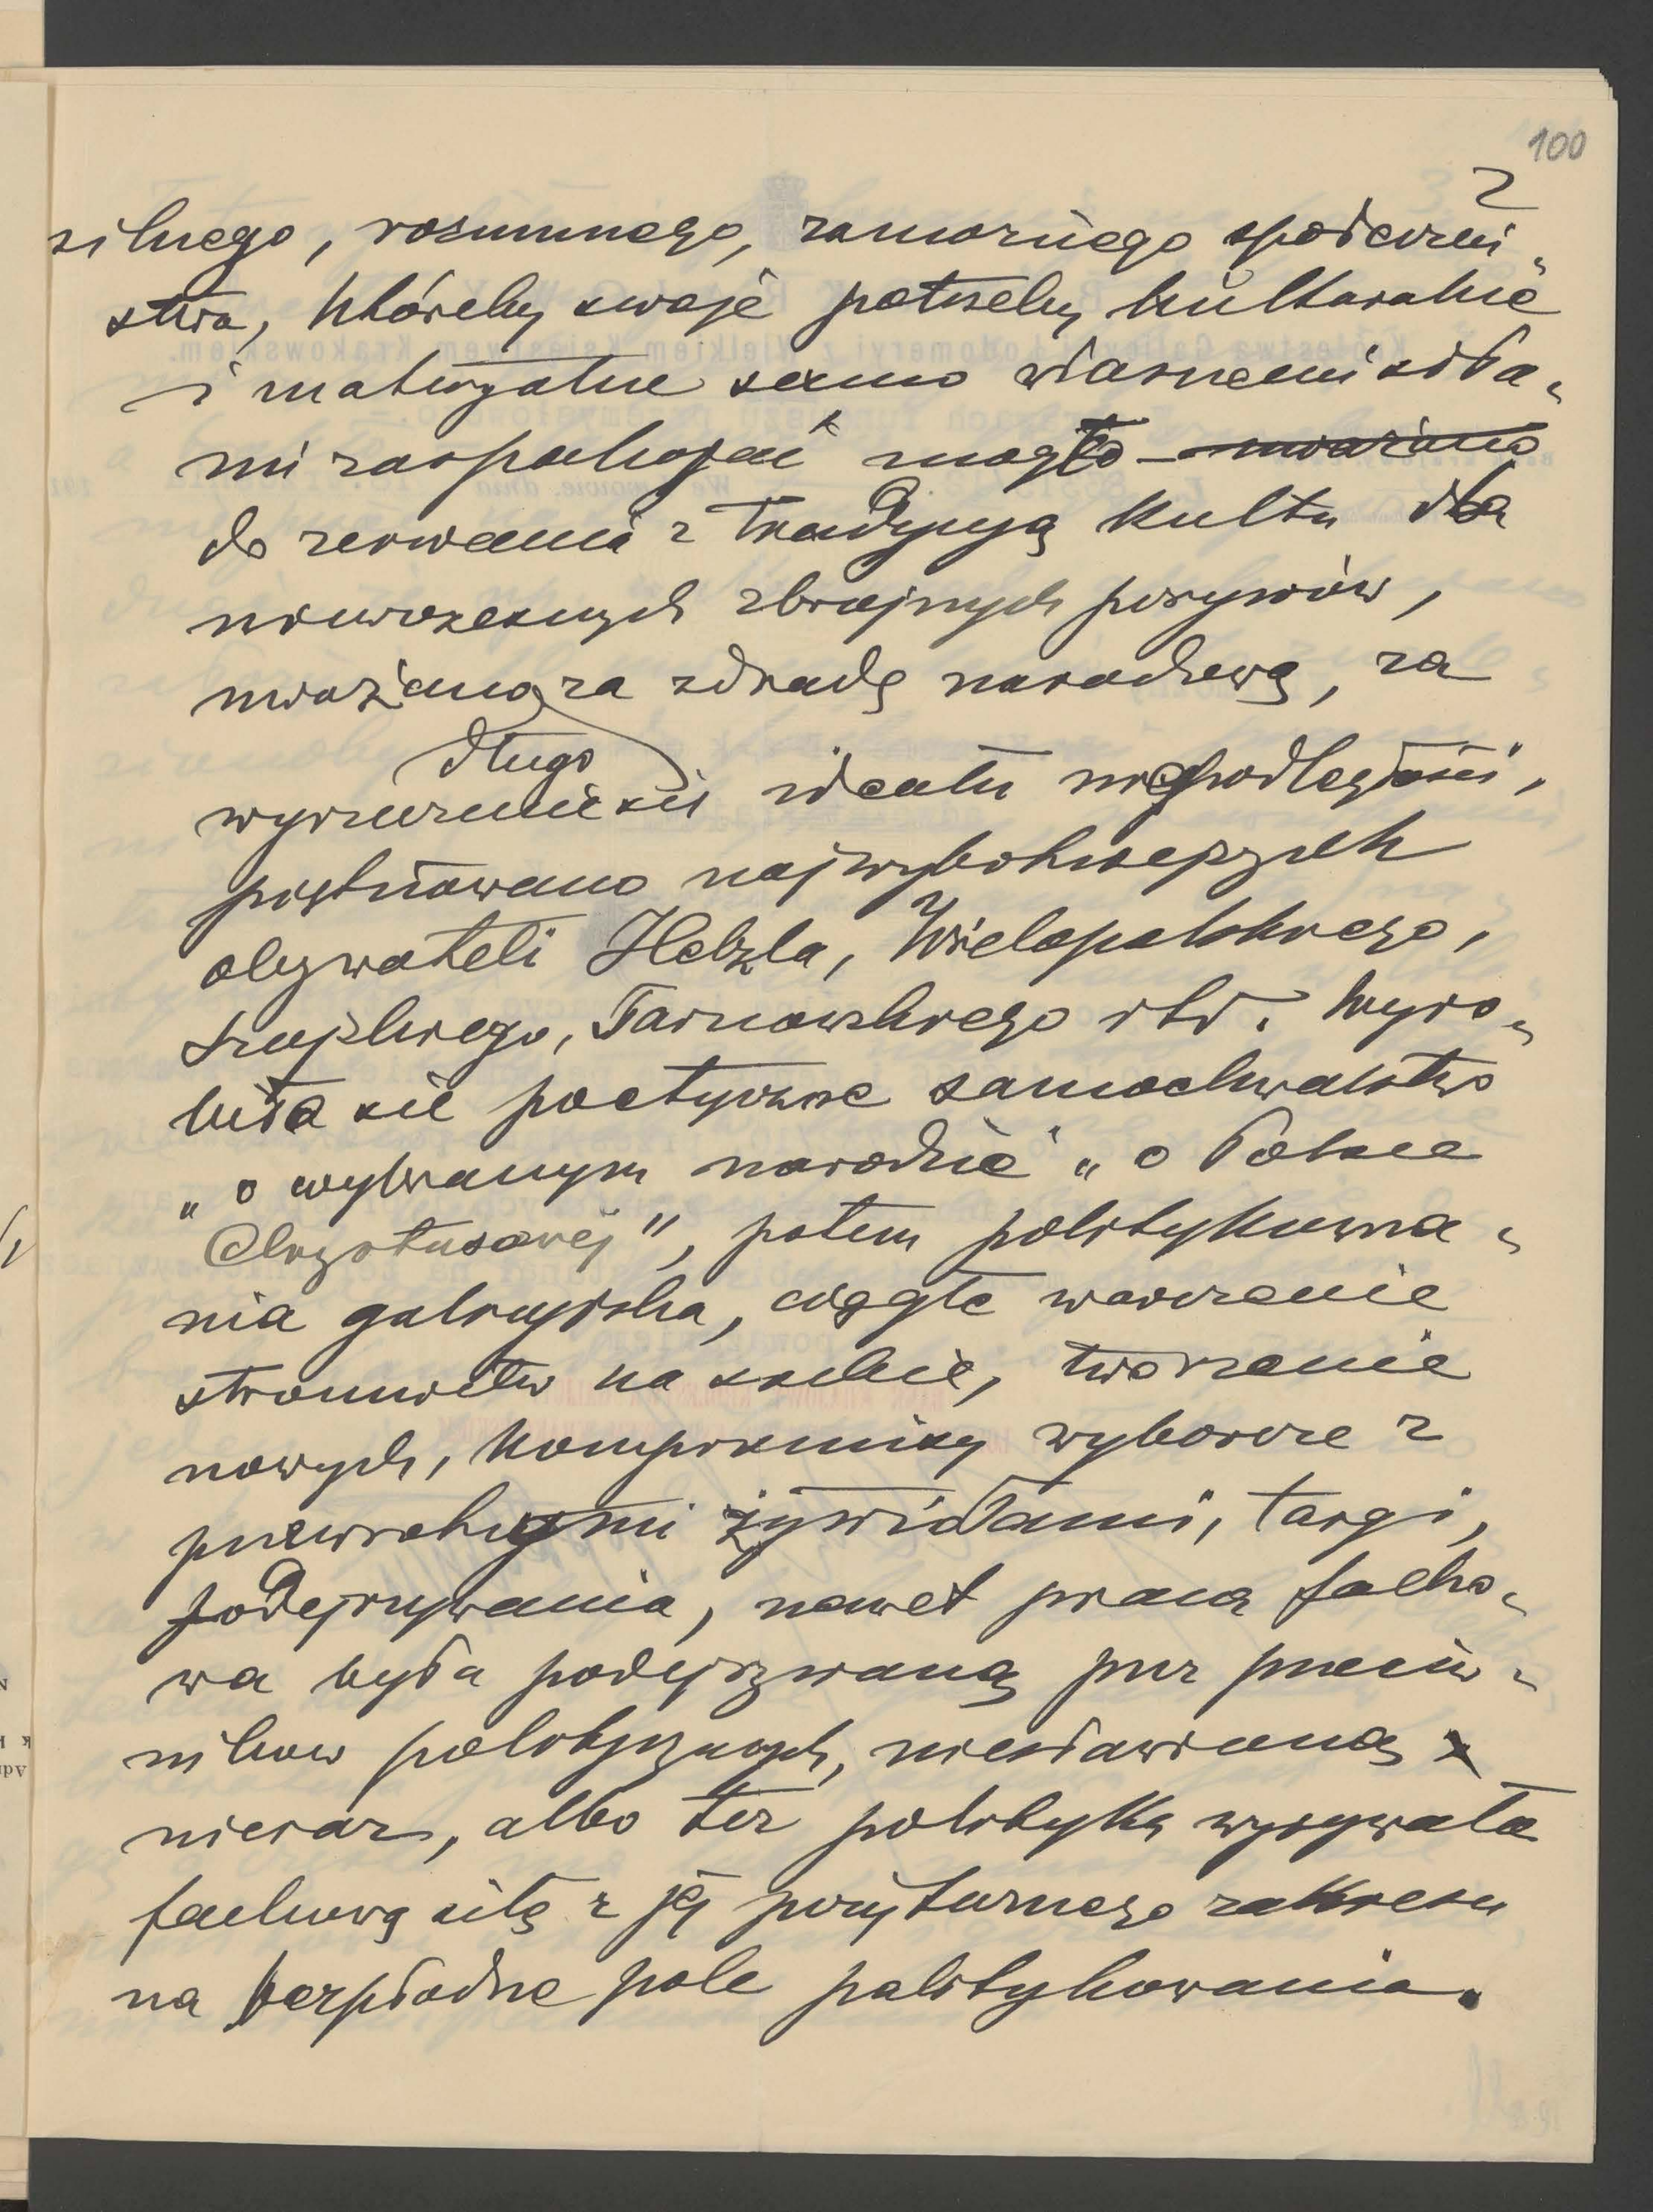 100
2
silnego, rozumnego, zamożnego społeczeń„
stwa, któreby swoje potrzeby kulturalne
i materyalne samo własnemi siła„
mi zaspakajać mogło – uważano
do zerwania z tradycyą kultu dla
niewczesnych zbrojnych porywów,
uważano za zdradę narodową, za
długo
wyrzeczenie się ideału niepodległości,
piętnowano najwybitniejszych
obywateli Helzla, Wielopolskiego,
Szujskiego, Tarnowskiego itd. Wyro„
biło się poetyczne samochwalstwo
„o wybranym narodzie" „o Polsce
Chrystusowej", potem politykowa„
nia galicyjska, ciągłe warczenie
stronnictw na siebie, tworzenie
nowych, kompromisy wyborcze z
przewrotnymi żywiołami, targi,
podejrzywania, nawet praca facho„
wa była podejrzywaną przez przeciw„
ników politycznych, niesławioną
nieraz, albo też polityka wyrywała
fachową siłę z jej pożytecznego zakresu
na bezpłodne pole politykowania.